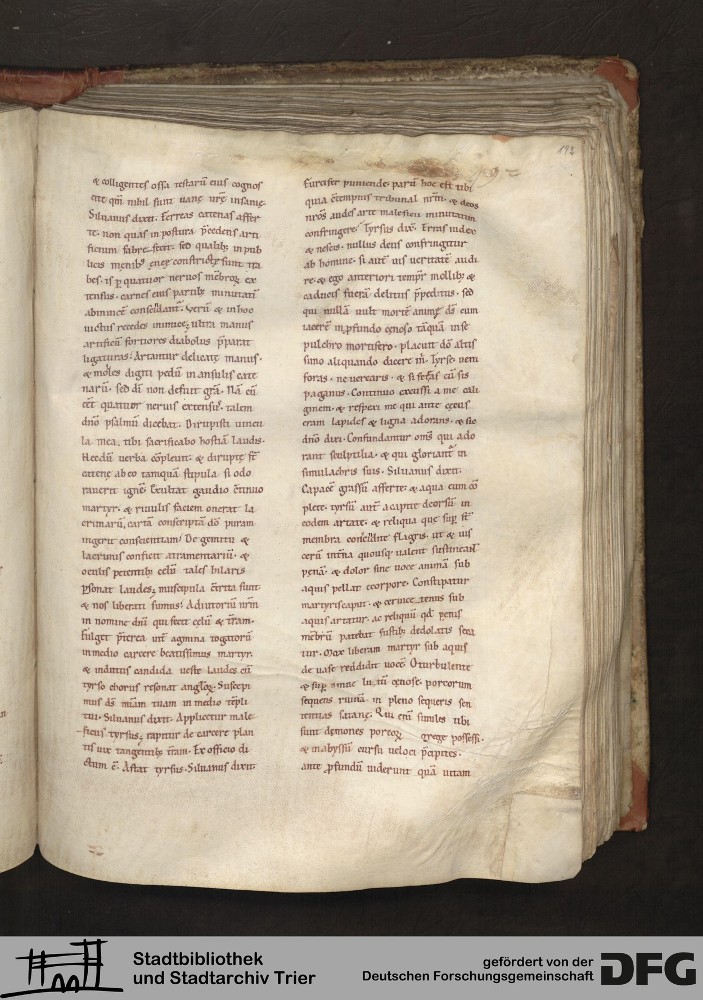 192
& colligentes ossa testarū eius cognos
cite qm̄ nihil sunt uanę urę̄ insanię.
Siluanus dixit. Ferreas catenas affer
te. non quas in postura p̄cedens arti
ficium fabre fecit. sed qualib; in pub
licis
bes. is p̄ quatuor neruos mēbroꝝ ex
tensus. carnes eius partib; minutati
abminicē conscīdant. Verū & in hoc
uictus recedes inimice; ultri manus
artificū fortiores diabolus p̄parat
ligaturas. Artantur delicatę manus.
& moles digiti pedū in ansulis cate
narū. sed dm̄ non defuit grā. Nā cū
eēt quatuor neruis extensus. talem
dn̄o psalmū dicebat. Dirupisti uincu
la mea, tibi sacrificabo hostiā laudis.
Hęc dū uerba cōpleuit. & diruptę st̄
catenę ab eo tamquā stipula si odo
rauerit ignē. Exultat gaudio cōtinuo
martyr. & riuulis faciem onerat la
crimarū, cartā conscriptā dō puram
ingerit conscientiam. De gemitu &
lacrimis conficit atramentariū. &
oculis petentib; cęlū tales hilaris
ꝑsonat laudes; muscipula cōtrita sunt.
& nos liberati sumus. Adiutoriū nr̄m
in nomine dn̄i qui fecit cęlū & trām.
Fulget p̄terea int̄ agmina togatorū
in medio carcere beatissimus martyr.
& indutus candida ueste laudes cū
tyrso chorus resonat angloꝝ. Suscepi
mus ds̄ miām tuam in medio tēpli
tui. Siluanus dixit. Applicetur male
ficus tyrsus; rapitur de carcere plan
tis uix tangentib; trām. Ex officio di
ctum ē. Astat tyrsus. Siluanus dixit.
Furcifer puniende. parū hoc est tibi
quia cōtempnis tribunal nrm̄. & deos
nrōs audes arte maleficii minutatim
confringere. Tyrsus dix̄. Erras iudex
& nescis. nullus deus confringitur
ab homine. si autē uis ueritatē audi
re. & ego anteriori tempr̄ mollib; &
caducis fuerā delitiis p̄peditus. sed
qui nullā uult mortē animę ds̄ cum
iacerē in ꝓfundo cęnoso tāquā in se
pulchro mortifero. placuit dō altis
simo aliquando dicere m̄. Tyrse ueni
foras. ne uerearis. & si
paganus. Continuo excussi a me cali
ginem. & respexi me qui ante cęcus
eram lapides & ligna adorans. & sic
dn̄o dixi. Confundantur oms̄ qui ado
rant sculptilia. & qui gloriant̄ in
simulachris suis. Siluanus dixit.
Capacē grassū afferte. & aqua eum cō
plete. tyrsū aut̄ a capite deorsū in
eodem artate. & reliqua quę sup̄ st̄
membra concīdite flagris. ut & uis
cerū int̄na quousq; ualent sustineant
pęnā. & dolor sine uoce animā sub
aquis pellat e corpore. Constipatur
martyris caput. & ceruice tenus sub
aquis artatur. ac reliquū qd̄ penis
mēbrū patebat fustib; dedolatis seca
tur. Mox liberam martyr sub aquis
de uase reddidit uocē. O turbulente
& sup̄ omne lutū cęnose. porcorum
sequens ruinā. in pleno sequeris sen
tentias satanę. Qui enī similes tibi
sunt demones porcoꝝ grege possessi.
& in abyssū cursu ueloci p̄cipites.
ante ꝓfundū uiderunt quā uitam
Stadtbibliothek
und Stadtarchiv Trier
gefördert von der
Deutschen Forschungsgemeinschaft
DFG